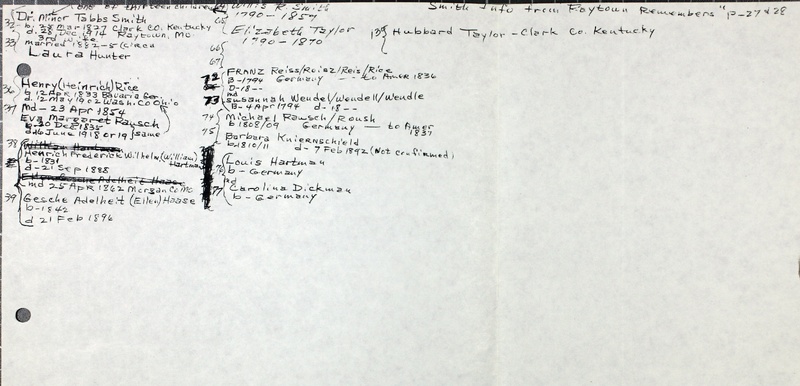 one of thirteen children
32 Dr. Minor Tabbs Smith
b. 28 Mar 1827 Clark Co. Kentucky
d. 28 Dec 1914 Raytown, Mo.
3rd wife
33 married 1882-5 (Circa
Laura Hunter
36 Henry (Heinrich) Rice
b 12 Apr 1833 Bavaria Ger.
d. 12 May 1902 Wash. Co Ohio
37 Md - 23 Apr 1854
Eva Margaret Rausch
b-30 Dec 1835
d 16 June 1918 or 19 same
38 William Hartman
Heinrich Frederick Wilhelm (William)
b- 1831 Hartman
d - 21 Sep 1888
Gesche Adelheit Haase
md 25 Apr 1862 Morgan Co Mo.
39 Gesche Adelheit (Ellen) Haase
b-1842
d 21 Feb 1896
64 Willis R Smith
1790 - 1857
65 Elizabeth Taylor
1790 - 1870
66
67
72 FRANZ Reiss/Roisz/Reis/Rice
B-1794 Germany -- to Amer 1836
D-18--
md
73 Susannah Wendel/Wendell/Wendle
B-4 Apr 1794 d. 18--
74 Michael Rausch/Roush
b 1808/09 Germany — to Amer
1837
75 Barbara Kniernschield
b1810/11 d- 7 Feb 1892 (Not confirmed)
76 Louis Hartman
b - Germany
md
77 Carolina Dickman
b - Germany
Smith Info from Raytown Remembers" p-27 & 28
131 Hubbard Taylor - Clark Co. Kentucky